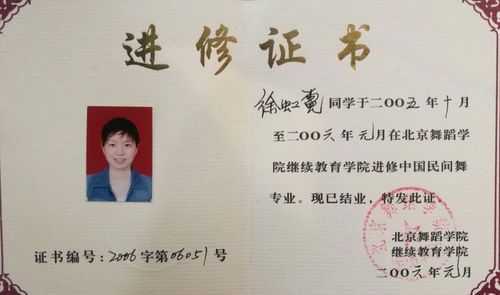 进修证书
徐虹同学于二〇〇五年十月
至二〇〇六年元月在北京舞蹈学
院继续教育学院进修中国民间舞
专业。现已结业，特发此证。
北京舞蹈学院
继续教育学院
二〇〇六年元月
证书编号：2006字第06051号